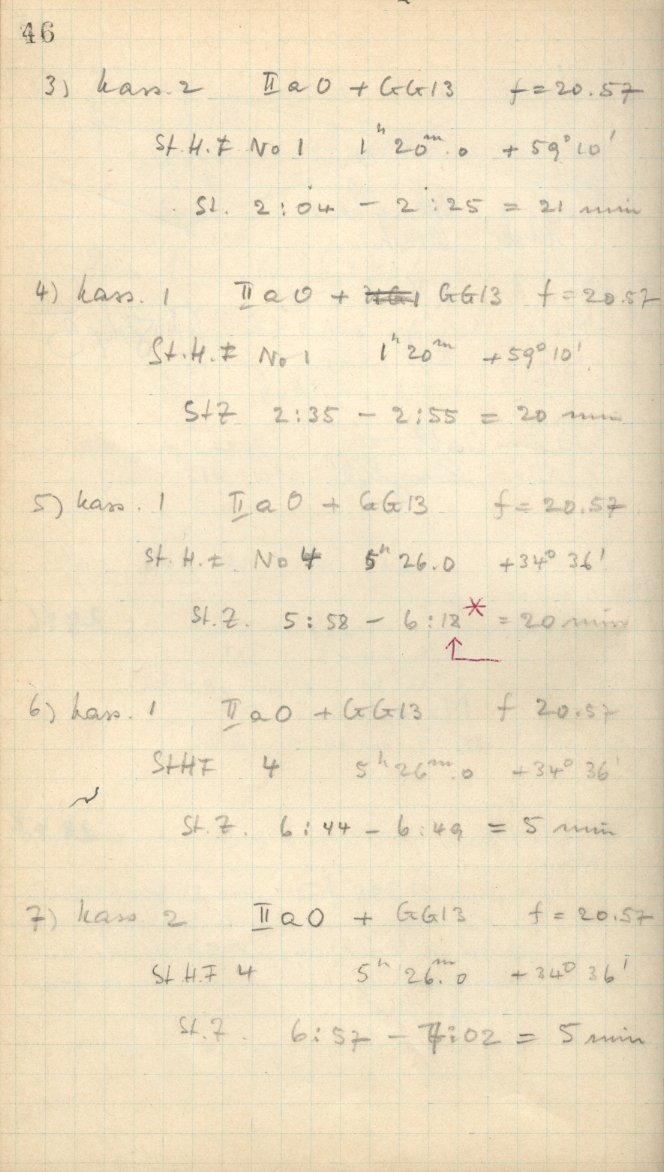 46
3) Kass. 2 II a O + GG13 f = 20.57
St.H.F No 1 1ʰ 20ᵐ.0 + 59° 10'
St. 2:04 - 2:25 = 21 min
4) Kass. 1 II a O + GG13 f = 20.57
St.H.F No 1 1ʰ 20ᵐ + 59° 10'
StZ 2:35 - 2:55 = 20 min
5) Kass. 1 II a O + GG13 f = 20.57
St.H.F. No 4 5ʰ 26.0 + 34° 36'
St.Z. 5:58 - 6:18* = 20 min
6) Kass. 1 II a O + GG13 f 20.57
StHF 4 5ʰ 26ᵐ.0 + 34° 36'
St.Z. 6:44 - 6:49 = 5 min
7) Kass 2 II a O + GG13 f = 20.57
St.H.F 4 5ʰ 26ᵐ.0 + 34° 36'
St.Z. 6:57 - 7:02 = 5 min